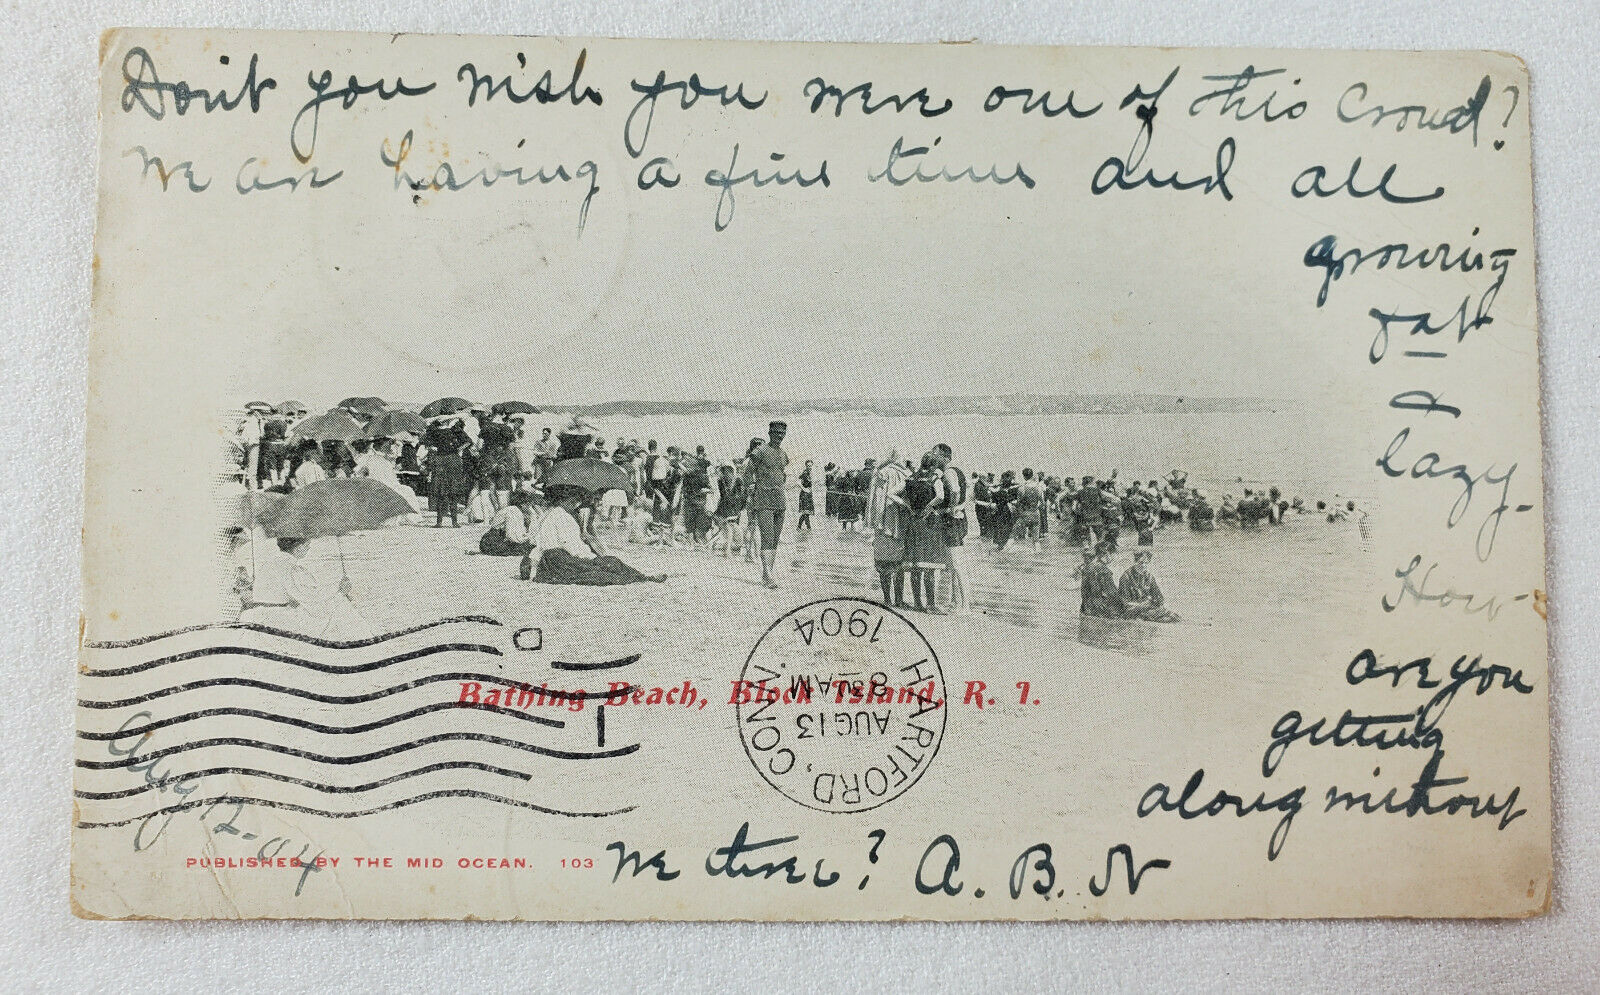 Don't you wish you were one of this crowd?
We are having a fine time and all
growing
fat
&
lazy.
How
are you
getting
along without
we three? A. B. N
Bathing Beach, Block Island, R. I.
HARTFORD, CONN.
AUG 13
8 30 AM
1904
D
1
Aug 12-04
PUBLISHED BY THE MID OCEAN. 103